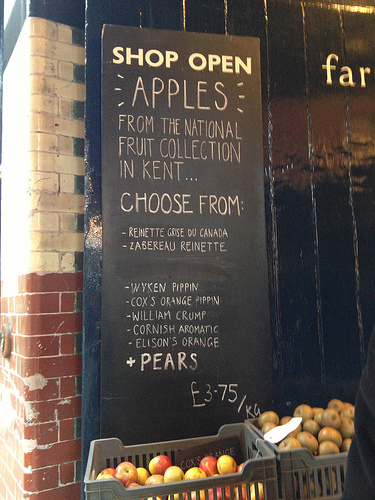 SHOP OPEN
APPLES
FROM THE NATIONAL
FRUIT COLLECTION
IN KENT...
CHOOSE FROM:
- REINETTE GRISE DU CANADA
- ZABEREAU REINETTE
- WYKEN PIPPIN
- COX'S ORANGE PIPPIN
- WILLIAM CRUMP
- CORNISH AROMATIC
- ELISON'S ORANGE
+ PEARS
£3-75/KG
far
COX'S ORANGE